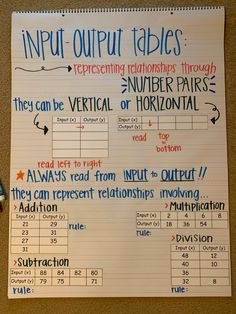 INPUT-OUTPUT TABLES:
representing relationships through
NUMBER PAIRS
they can be VERTICAL or HORIZONTAL
Input (x) Output (y)
Input (x)
Output (y)
read left to right
read top to bottom
★ALWAYS read from INPUT to OUTPUT!!
they can represent relationships involving...
> Addition
Input (x) Output (y)
21 29
23 31
27 35
31
rule:
> Multiplication
Input (x) 2 4 6 8
Output (y) 18 36 54
rule:
> Subtraction
Input (x) 88 84 82 80
Output (y) 79 75 71
rule:
> Division
Input (x) Output (y)
48 12
40 10
36
32 8
rule: